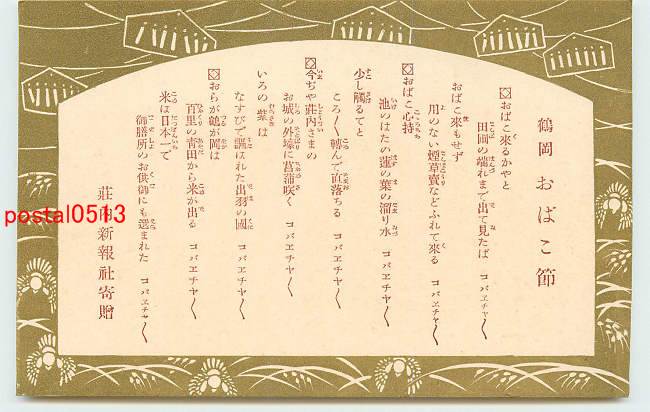 鶴岡 おばこ節
◇おばこ來るかやと
田圃の端れまで出て見たば
コバエチャ〳〵
おばこ來もせず
用のない煙草賣などふれて來る
コバエチャ〳〵
◇おばこ心持
池のはたの蓮の葉の溜り水
コバエチャ〳〵
少し觸ると
ころ〳〵轉んで直落ちる コバエチャ〳〵
◇今ぢや莊内さまの
お城の外壕に菖蒲咲く コバエチャ〳〵
いろの紫は
なすびで謳はれた出羽の國 コバエチャ〳〵
◇おらが鶴が岡は
百里の靑田から米が出る コバエチャ〳〵
米は日本一で
御膳所のお供御にも選まれた コバエチャ〳〵
莊内新報社寄贈
postal05n3